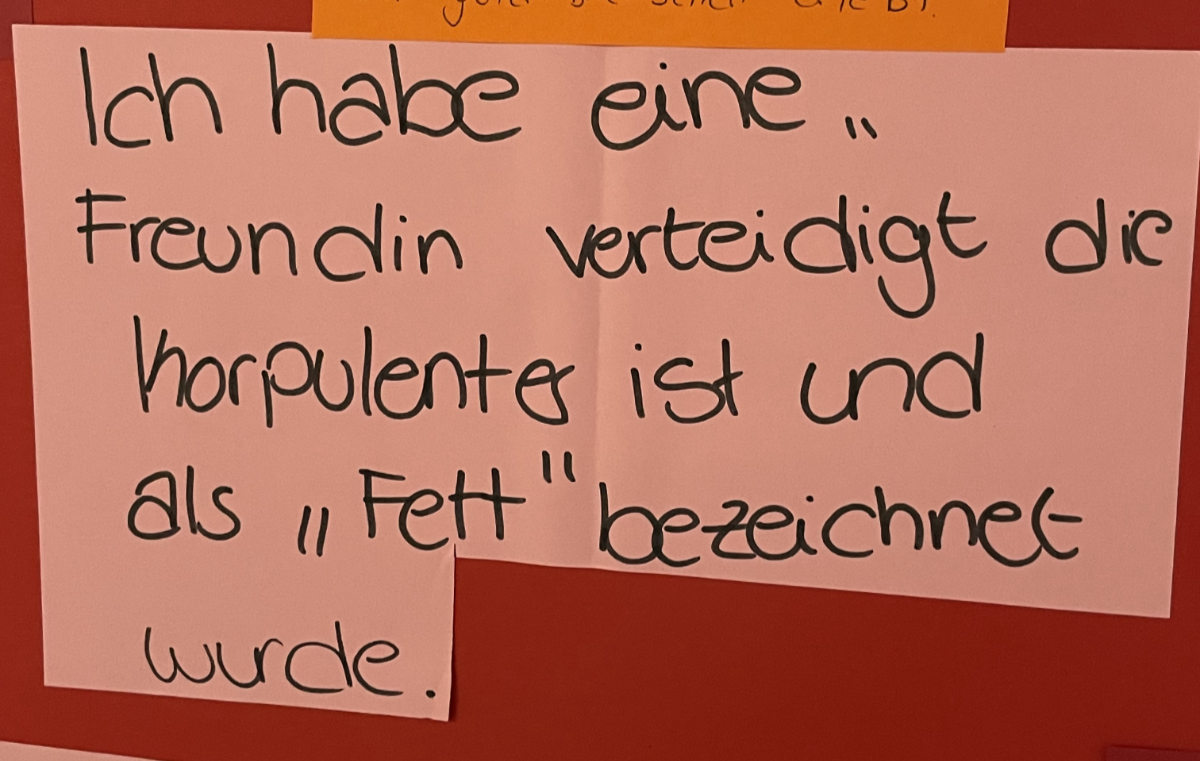 Ich habe eine „
Freundin verteidigt die
korpulenter ist und
als „Fett" bezeichnet
wurde.